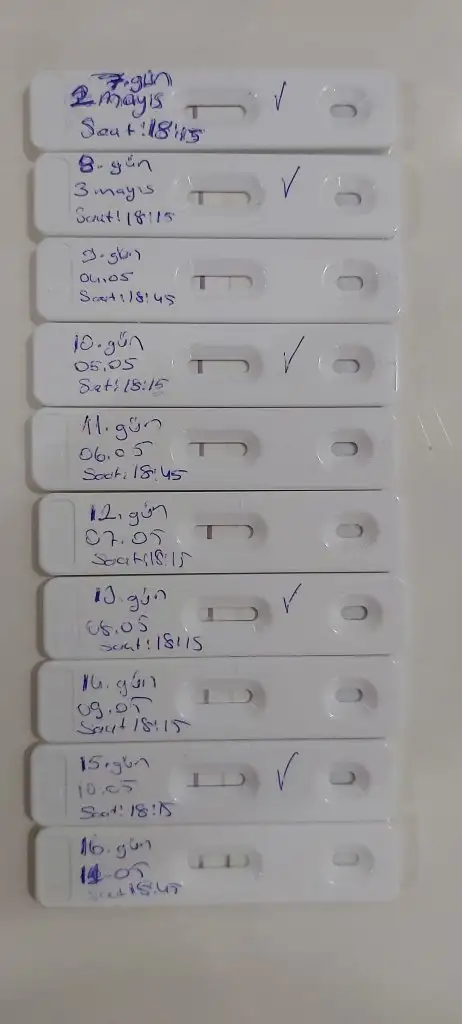 7.gün
2 mayıs
Saat:18:15
8. gün
3 mayıs
Saat:18:15
9. gün
04.05
Saat:18:45
10.gün
05.05
Sat:18:15
11. gün
06.05
Saat:18:45
12. gün
07.05
Saat:18:15
13. gün
08.05
Saat:18:15
14. gün
09.05
Saat:18:15
15.gün
10.05
Saat:18:15
16. gün
11.05
Saat:18:45